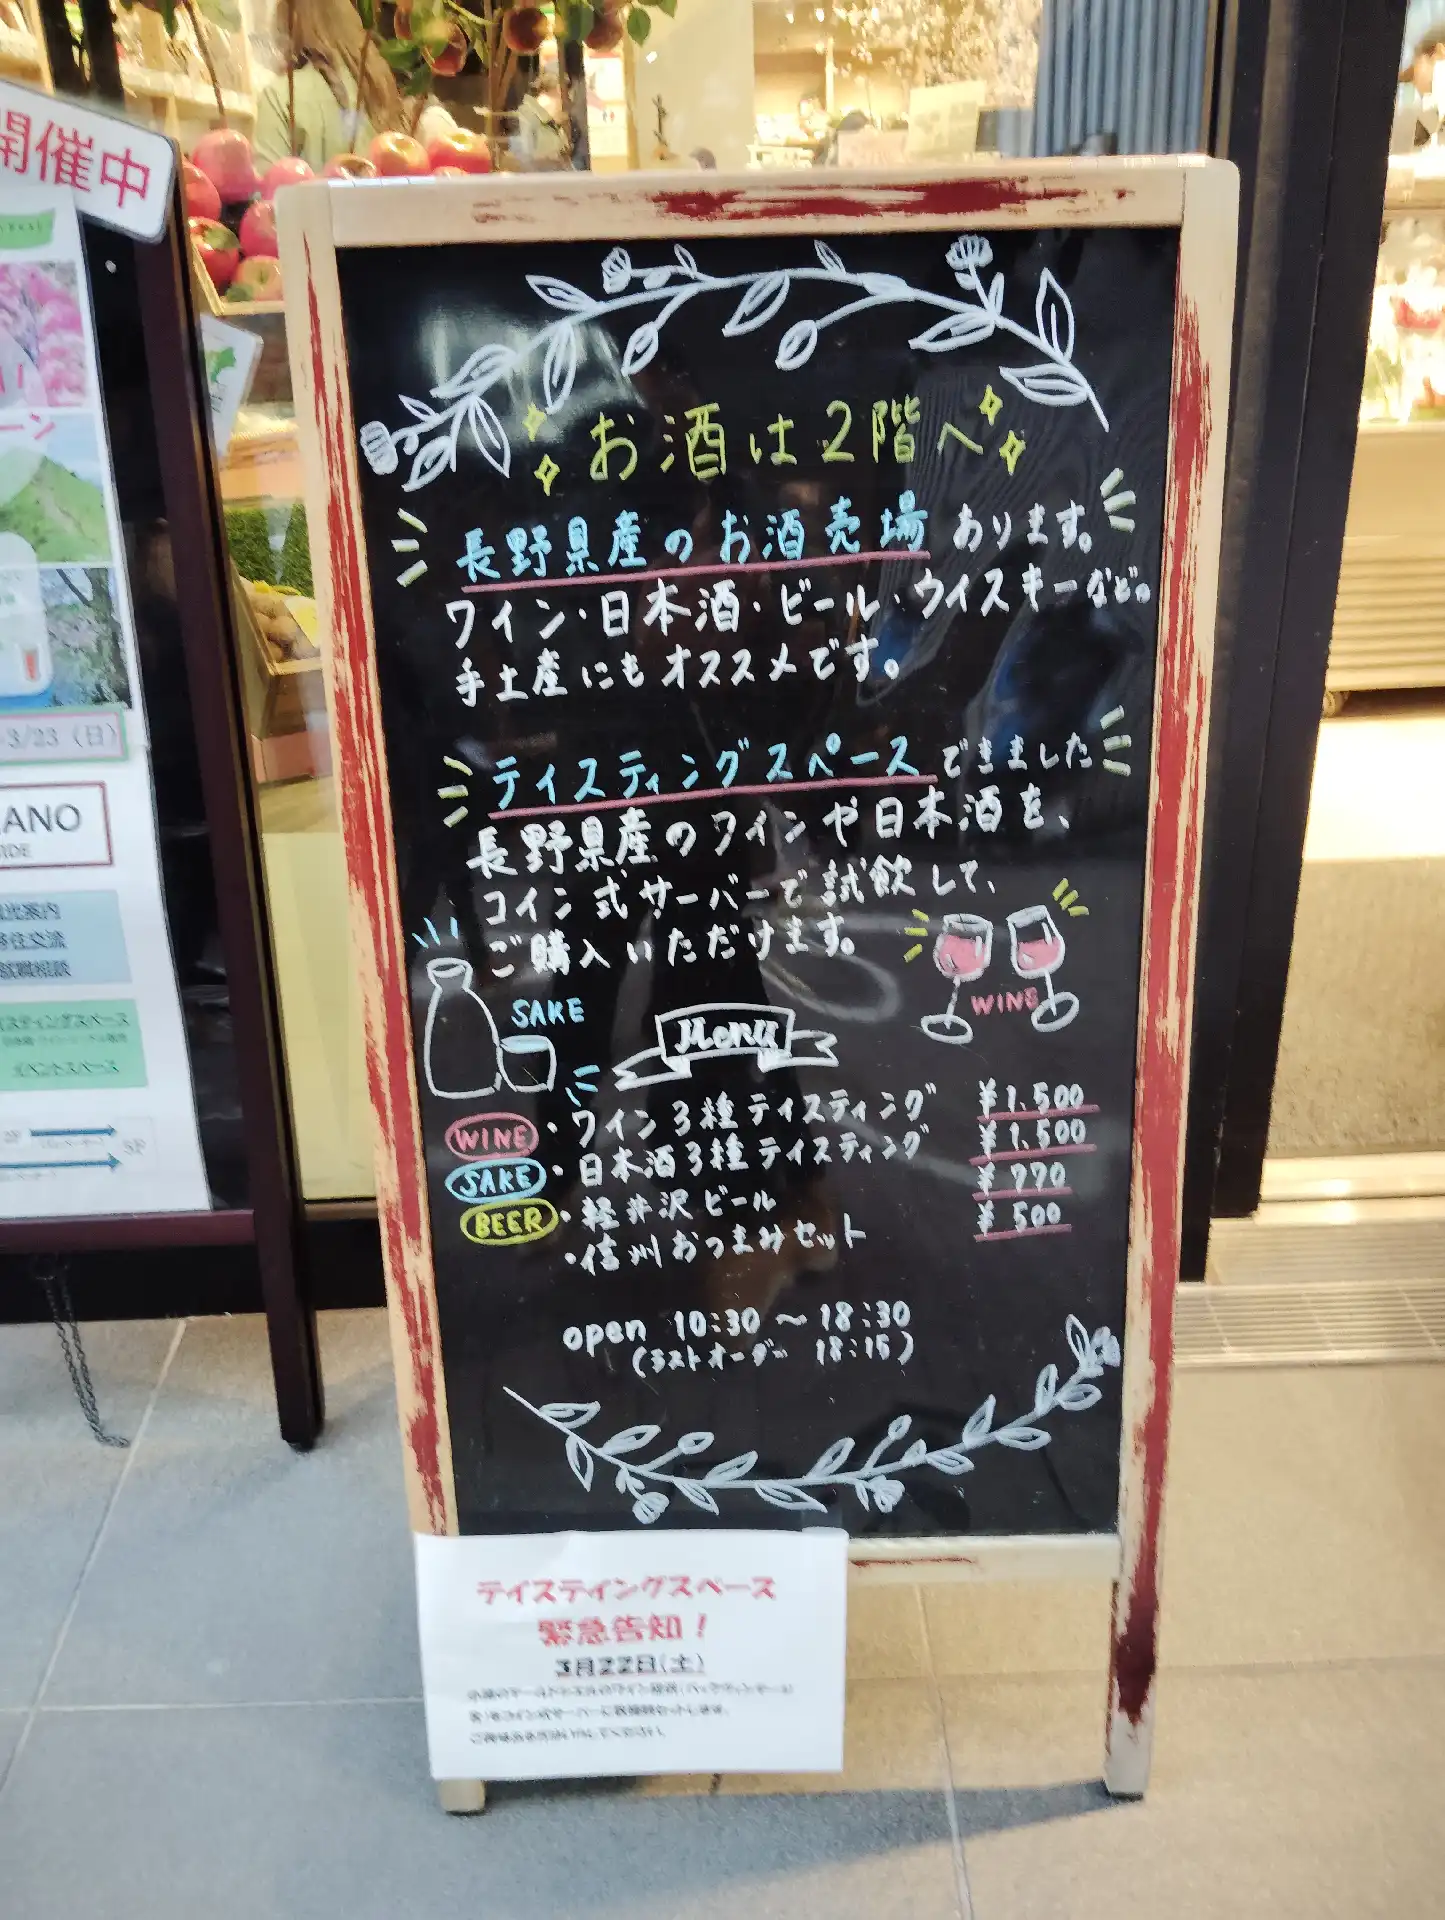 開催中
お酒は2階へ
長野県産のお酒売場 あります。
ワイン・日本酒・ビール・ウイスキーなど。
手土産にもオススメです。
テイスティングスペース できました
長野県産のワインや日本酒を、
コイン式サーバーで試飲して、
ご購入いただけます。
SAKE
WINE
Menu
WINE ・ワイン3種テイスティング ¥1,500
SAKE ・日本酒3種テイスティング ¥1,500
BEER ・軽井沢ビール ¥770
・信州おつまみセット ¥500
open 10:30～18:30
(ラストオーダー 18:15)
テイスティングスペース
緊急告知！
3月22日(土)
3/23（日）
ANO
IDE
光案内
移住交流
就職相談
イスティングスペース
イベントスペース
5F